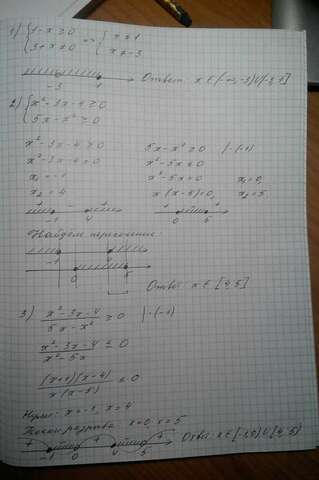 1) { 1-x ≥ 0 => { x ≠ 1
{ 3+x ≠ 0 { x ≠ -3
-3 1 Ответ: x ∈ (-∞,-3)∪(-3,1]
2) { x²-3x-4 ≥ 0
{ 5x-x² ≥ 0
x²-3x-4 ≥ 0
x²-3x-4=0
x₁=-1
x₂=4
+ - +
-1 4
5x-x² ≥ 0 | ·(-1)
x²-5x ≤ 0
x²-5x=0
x(x-5)=0, x₁=0, x₂=5
+ - +
0 5
Найдем пересечение:
-1 4
0 5
Ответ: x ∈ [4,5]
3) (x²-3x-4)/(5x-x²) ≥ 0 | ·(-1)
(x²-3x-4)/(x²-5x) ≤ 0
((x+1)(x-4))/(x(x-5)) ≤ 0
Нули: x=-1, x=4
Точки разрыва x=0, x=5
+ - + - +
-1 0 4 5
Ответ: x ∈ [-1,0)∪[4,5)